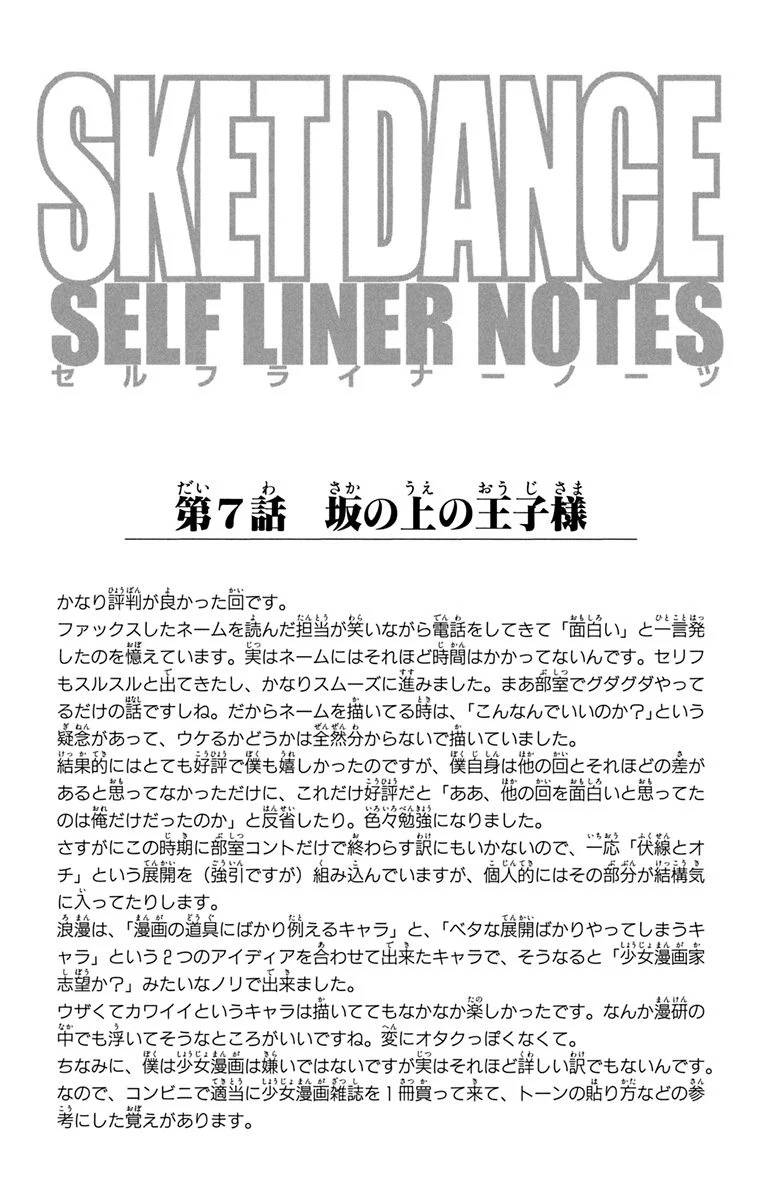 SKET DANCE
SELF LINER NOTES
セルフライナーノーツ
第7話 坂の上の王子様
かなり評判が良かった回です。
ファックスしたネームを読んだ担当が笑いながら電話をしてきて「面白い」と一言発
したのを憶えています。実はネームにはそれほど時間はかかってないんです。セリフ
もスルスルと出てきたし、かなりスムーズに進みました。まあ部室でグダグダやって
るだけの話ですしね。だからネームを描いてる時は、「こんなんでいいのか?」という
疑念があって、ウケるかどうかは全然分からないで描いていました。
結果的にはとても好評で僕も嬉しかったのですが、僕自身は他の回とそれほどの差が
あると思ってなかっただけに、これだけ好評だと「ああ、他の回を面白いと思ってた
のは俺だけだったのか」と反省したり。色々勉強になりました。
さすがにこの時期に部室コントだけで終わらす訳にもいかないので、一応「伏線とオ
チ」という展開を(強引ですが)組み込んでいますが、個人的にはその部分が結構気
に入ってたりします。
浪漫は、「漫画の道具にばかり例えるキャラ」と、「ベタな展開ばかりやってしまうキ
ャラ」という2つのアイディアを合わせて出来たキャラで、そうなると「少女漫画家
志望か?」みたいなノリで出来ました。
ウザくてカワイイというキャラは描いててもなかなか楽しかったです。なんか漫研の
中でも浮いてそうなところがいいですね。変にオタクっぽくなくて。
ちなみに、僕は少女漫画は嫌いではないですが実はそれほど詳しい訳でもないんです。
なので、コンビニで適当に少女漫画雑誌を1冊買って来て、トーンの貼り方などの参
考にした覚えがあります。